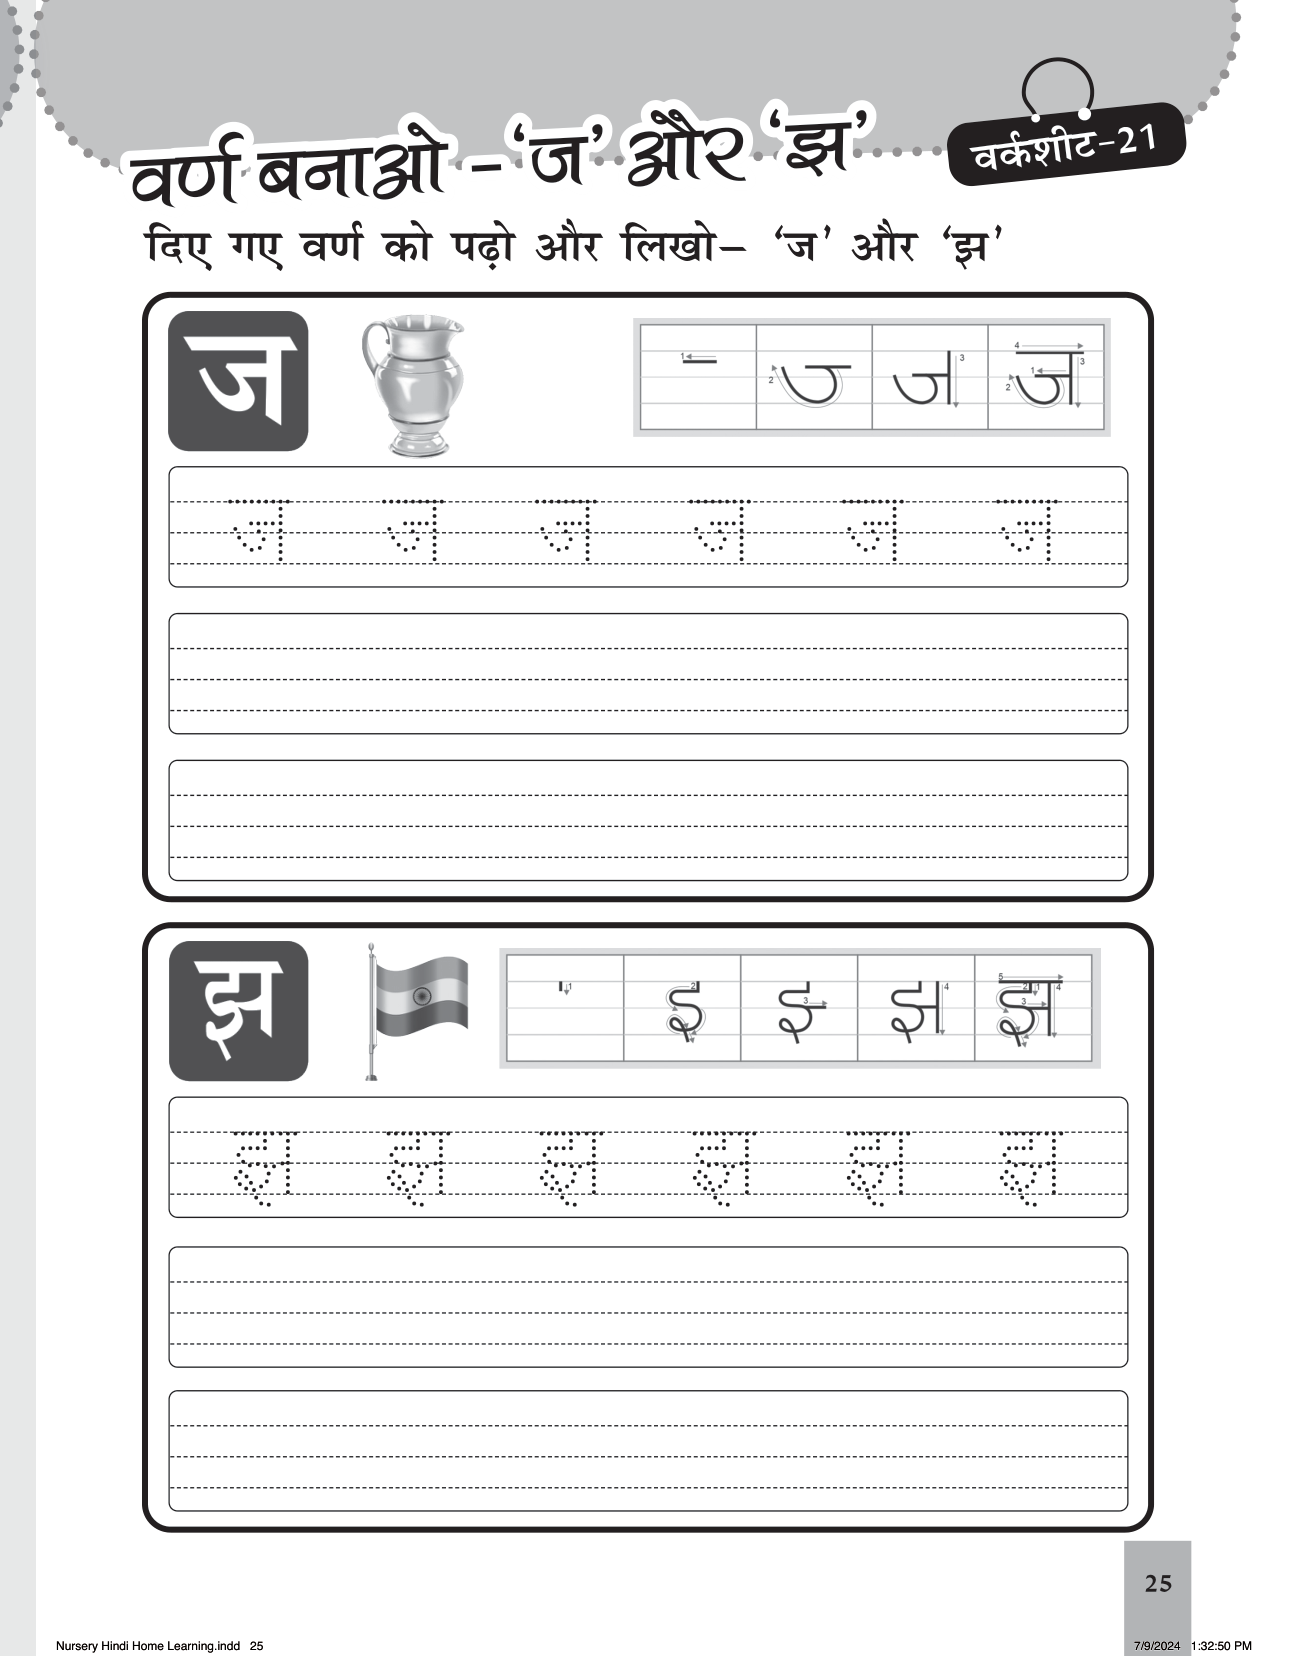 वर्ण बनाओ – ‘ज’ और ‘झ’
वर्कशीट–21
दिए गए वर्ण को पढ़ो और लिखो– ‘ज’ और ‘झ’
ज
1 2 3 4 1 3 2
ज ज ज ज ज ज
झ
1 2 3 4 5 2 1 4 3
झ झ झ झ झ झ
25
Nursery Hindi Home Learning.indd 25
7/9/2024 1:32:50 PM